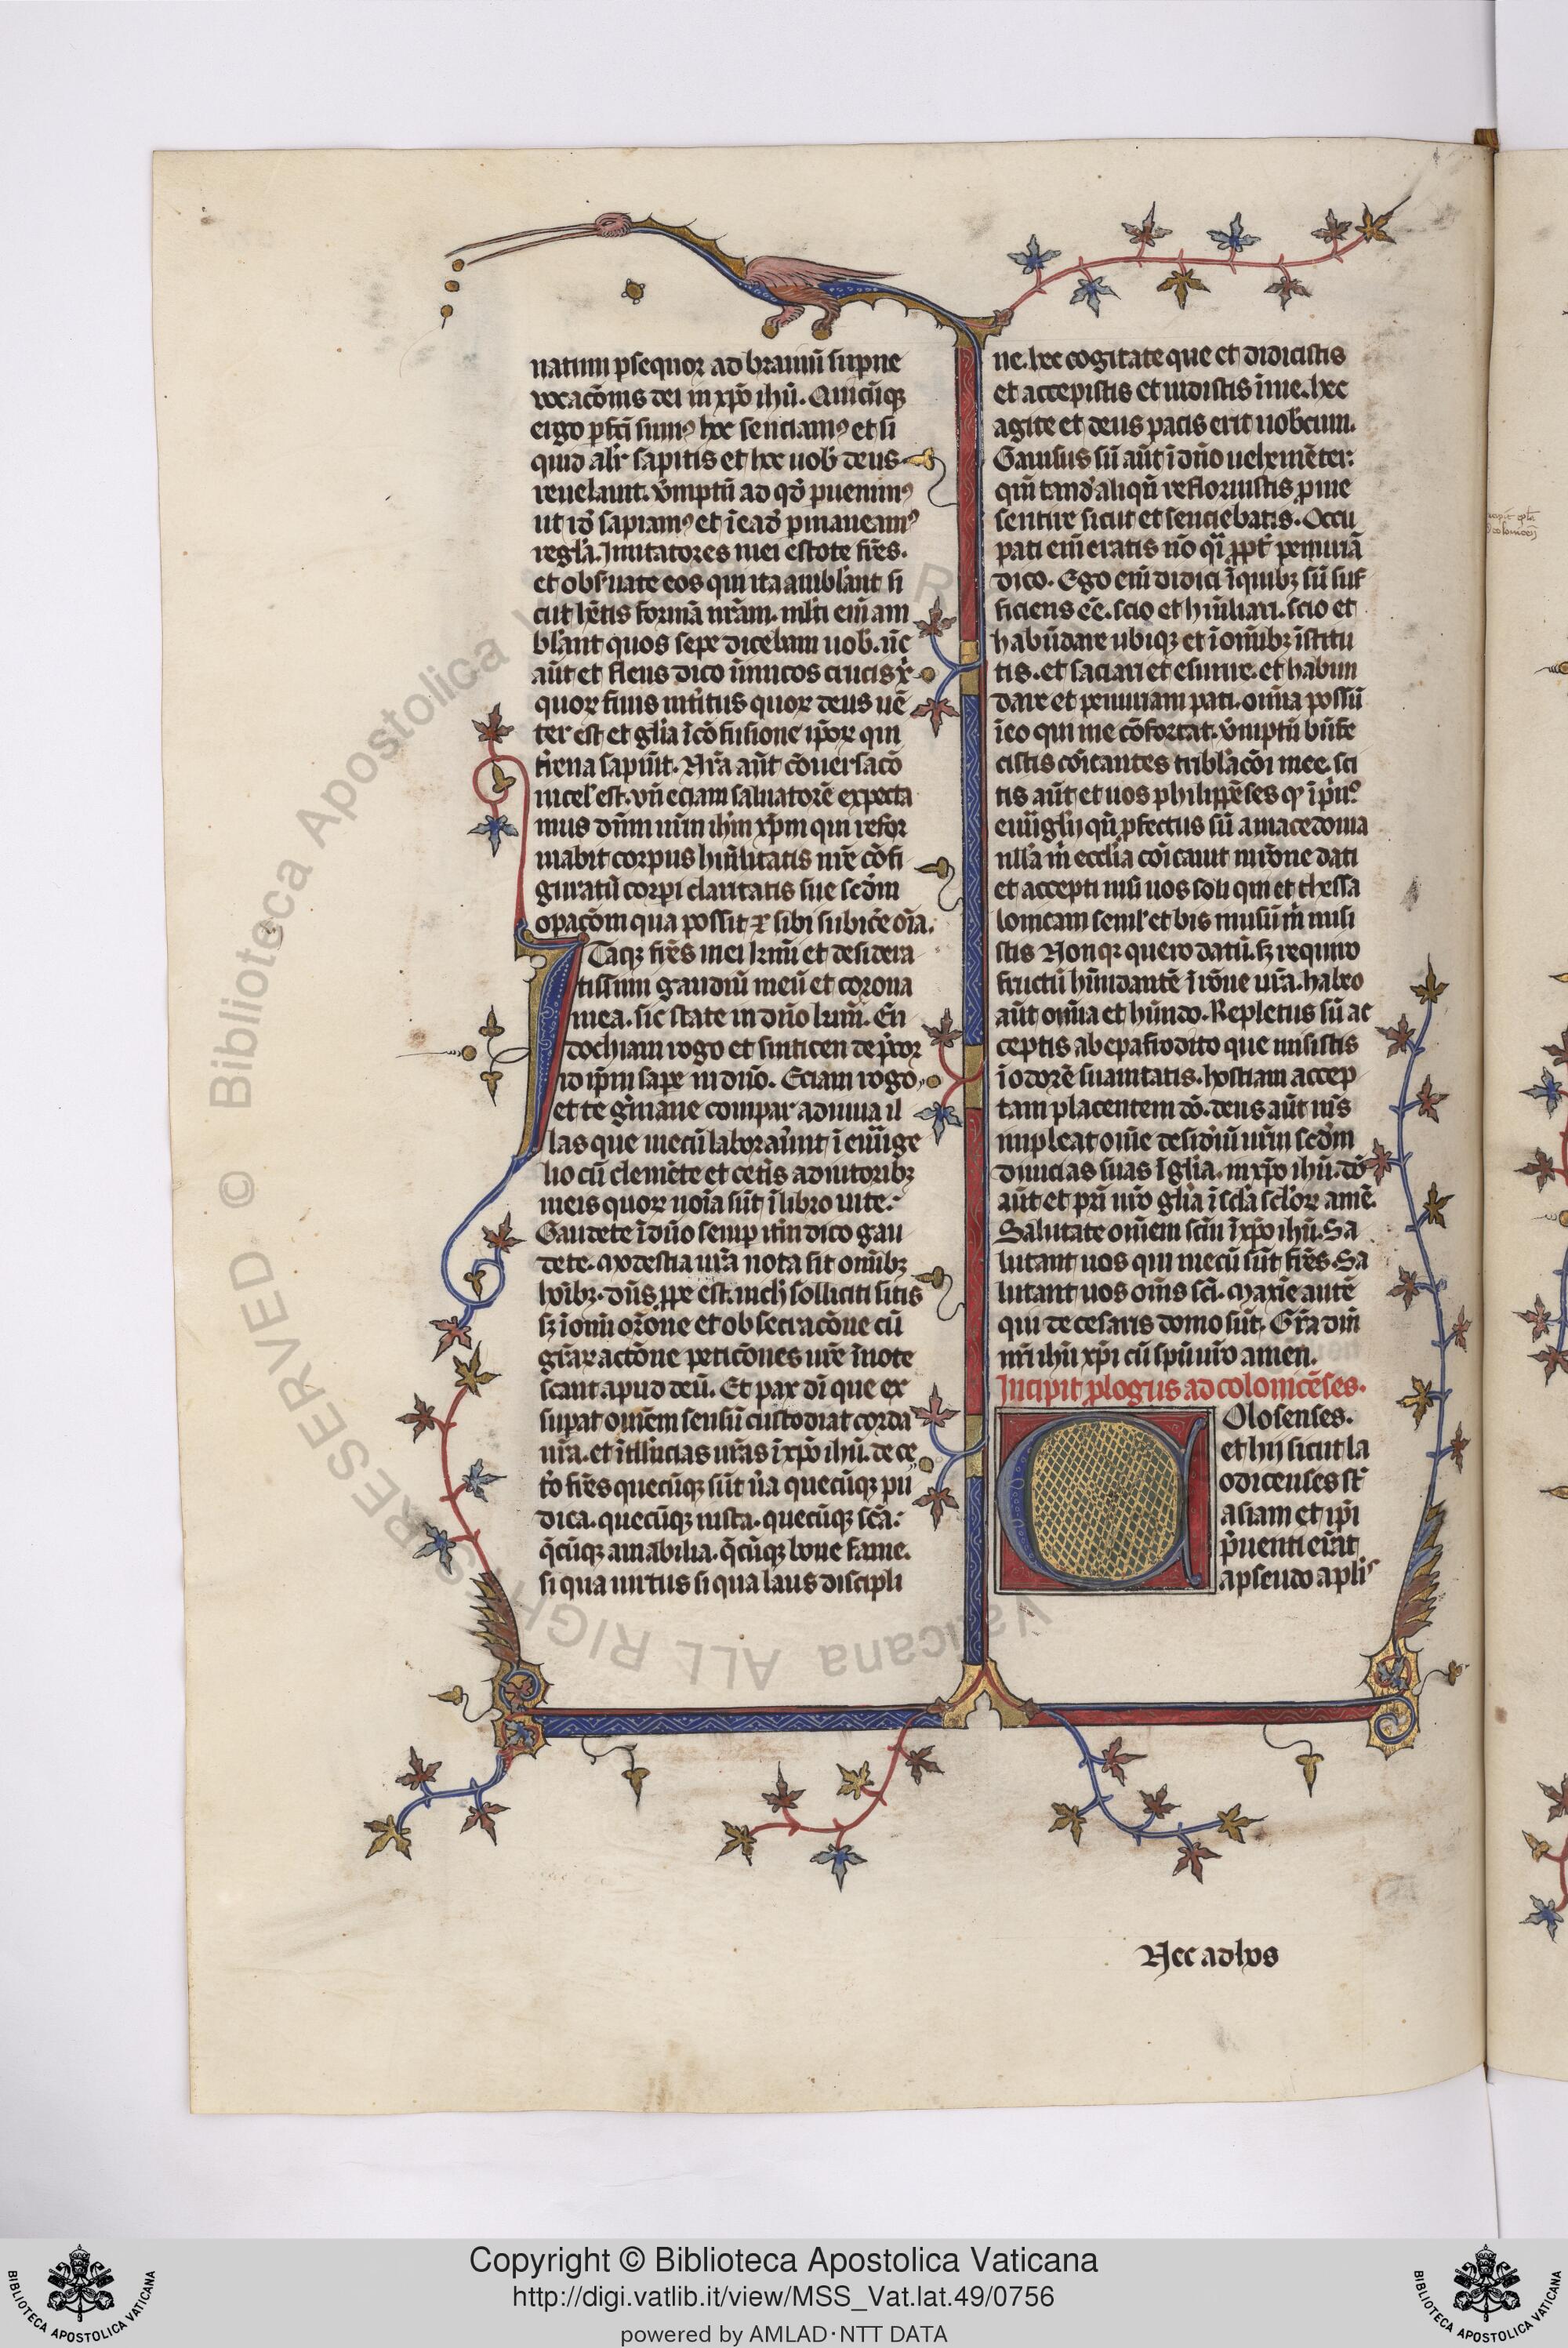 natum psequor ad brauiū supne
vocacōnis dei in xp̄o ihū. Quicūqꝫ
ergo pfc̄i sumꝰ hoc senciamꝰ et si
quid alr̄ sapitis et hoc uob deus
reuelauit. v̄mptū ad qd̄ puenimꝰ
ut id̄ sapiamꝰ et ī ead̄ pmaneamꝰ
regl̄a. Imitatores mei estote fr̄es.
et obs̄uate eos qui ita ambl̄ant si
cut hētis formā nr̄am. ml̄ti em̄ am
bl̄ant quos sepe dicebam uob. nc̄
aūt et flens dico inimicos crucis xp̄i
quoꝝ finis int̄itus quoꝝ deus uē
ter est et gl̄ia ī cō fusione ipoꝝ qui
t̄rena sapiūt. Nr̄a aūt cōuersacō
in cel̄ est. vn̄ eciam saluatorē expecta
mus dn̄m nr̄m ihm̄ xp̄m qui refor
mabit corpus humilitatis nr̄e cōfi
guratū corpi claritatis sue sc̄dm
opacōm qua possit ⁊ sibi subic̄e oīa.
Itaqꝫ fr̄es mei kmī et desidera
tissimi gaudiū meū et corona
mea. sic state in dn̄o kmī. Eu
dochiam rogo et sinticen depc̄or
id ip̄m sape in dn̄o. Eciam rogo
et te ḡmane compar adiuua il
las que mecū laborauer̄t ī euuāge
lio cū clemēte et cet̄is adiutoribꝫ
meis quoꝝ noīa sūt ī libro uite.
Gaudete ī dn̄o semp it̄m dico gau
dete. modestia ur̄a nota sit om̄ibꝫ
hoībꝫ. dn̄s ꝓpe est. nich̄ solliciti sitis
sꝫ ī omī or̄one et obsecracōne cū
gr̄aꝝ actōne peticōnes ur̄e īnote
scant apud deū. Et pax dī que ex
supat omēm sensū custodiat corda
ur̄a. et īt̄lligēcias ur̄as ī xp̄o ihū. de ce
t̄o fr̄es quecūqꝫ sūt u̇a quecūqꝫ pu
dica. quecūqꝫ iusta. quecūqꝫ sc̄a.
q̄cūqꝫ amabilia. q̄cūqꝫ bone fame.
si qua uirtus si qua laus discipli
ne. hec cogitate que et didicistis
et accepistis et uidistis ī me. hec
agite et deus pacis erit uobcum.
Gauisus sū aūt ī dn̄o uehemēter.
qm̄ tand̄ aliqn̄ refloruistis p me
sentire sicut et senciebatis. Occu
pati em̄ eratis nō qꝫ ꝓpt̄ penuriā
dico. Ego em̄ didici ī quibꝫ sū suf
ficiens eē. scio et humiliari. scio et
habūdare ubiqꝫ et ī om̄ibꝫ īstitu
tis. et saciari et esurire. et habun
dare et penuriam pati. omīa possū
ī eo qui me cōfortat. v̄mptū bn̄fe
cistis cōīcantes tribl̄acōi mee. sci
tis aūt et uos philippēses qꝫ ī pnꝰ
euuāglij qn̄ pfectus sū a macedonia
null̄a m̄ eccl̄ia cōīcauit in rōne dati
et accepti nisi uos soli qui et thessa
lonicam semel et bis in usū m̄ misi
stis Non qꝫ quero datū. sꝫ requiro
fructū habūdantē ī rōne ur̄a. habeo
aūt omīa et habūdo. Repletus sū ac
ceptis ab epafrodito que misistis
ī odorē suauitatis. hostiam accep
tam placentem dō. deus aūt m̄s
impleat ome desidiū ur̄m sc̄dm
diuicias suas ī gl̄ia. in xp̄o ihū. dō
aūt et pri nr̄o gl̄ia ī scl̄a scl̄oꝝ amē.
Salutate omēm sc̄m ī xp̄o ihū. Sa
lutant uos qui mecū sūt fr̄es. Sa
lutant uos om̄s sc̄i. maxīe autē
qui de cesaris domo sūt. Gr̄a dn̄i
nr̄i ihū xp̄i cū spū ur̄o amen.
Incipit plogus ad colonicēses.
Colosenses.
et hii sicut la
odicenses st̄
asiam et ip̄i
p̄uenti erāt
a pseudo apl̄is
Nec ad hos
Copyright © Biblioteca Apostolica Vaticana
http://digi.vatlib.it/view/MSS_Vat.lat.49/0756
powered by AMLAD·NTT DATA
BIBLIOTECA APOSTOLICA VATICANA
BIBLIOTECA APOSTOLICA VATICANA
© Biblioteca Apostolica Vaticana ALL RIGHTS RESERVED